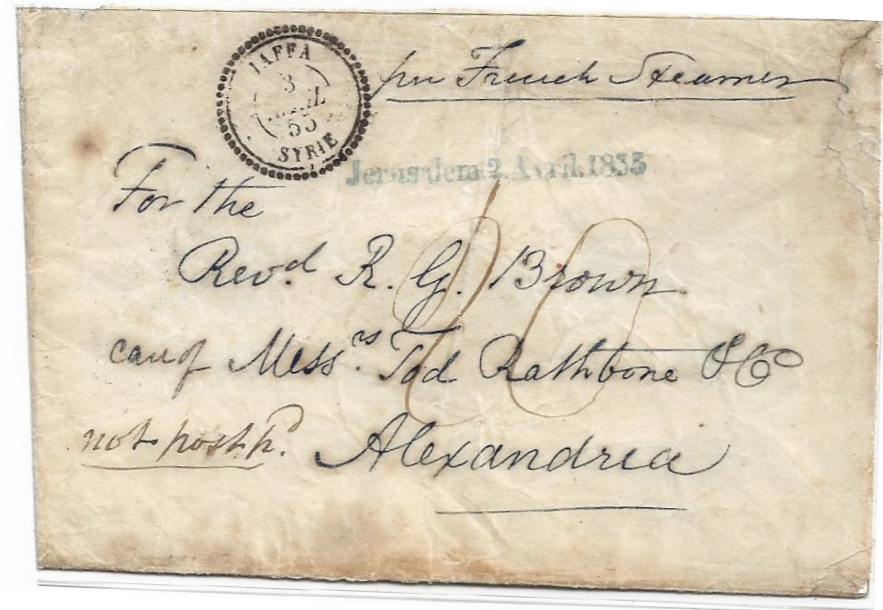 JAFFA
3
55
SYRIE
per French Steamer
Jerusalem 2 Avril.1855
For the
Revd. R. G. Brown
care of Messrs. Tod Rathbone & Co
not post pd.
Alexandria